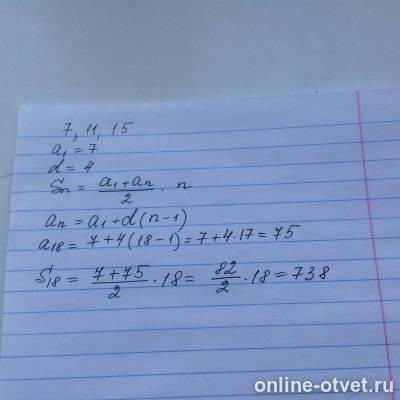 7, 11, 15
a₁ = 7
d = 4
Sn = (a₁ + an)/2 · n
an = a₁ + d(n-1)
a₁₈ = 7+4(18-1) = 7+4·17 = 75
S₁₈ = (7+75)/2 · 18 = 82/2 · 18 = 738
online-otvet.ru